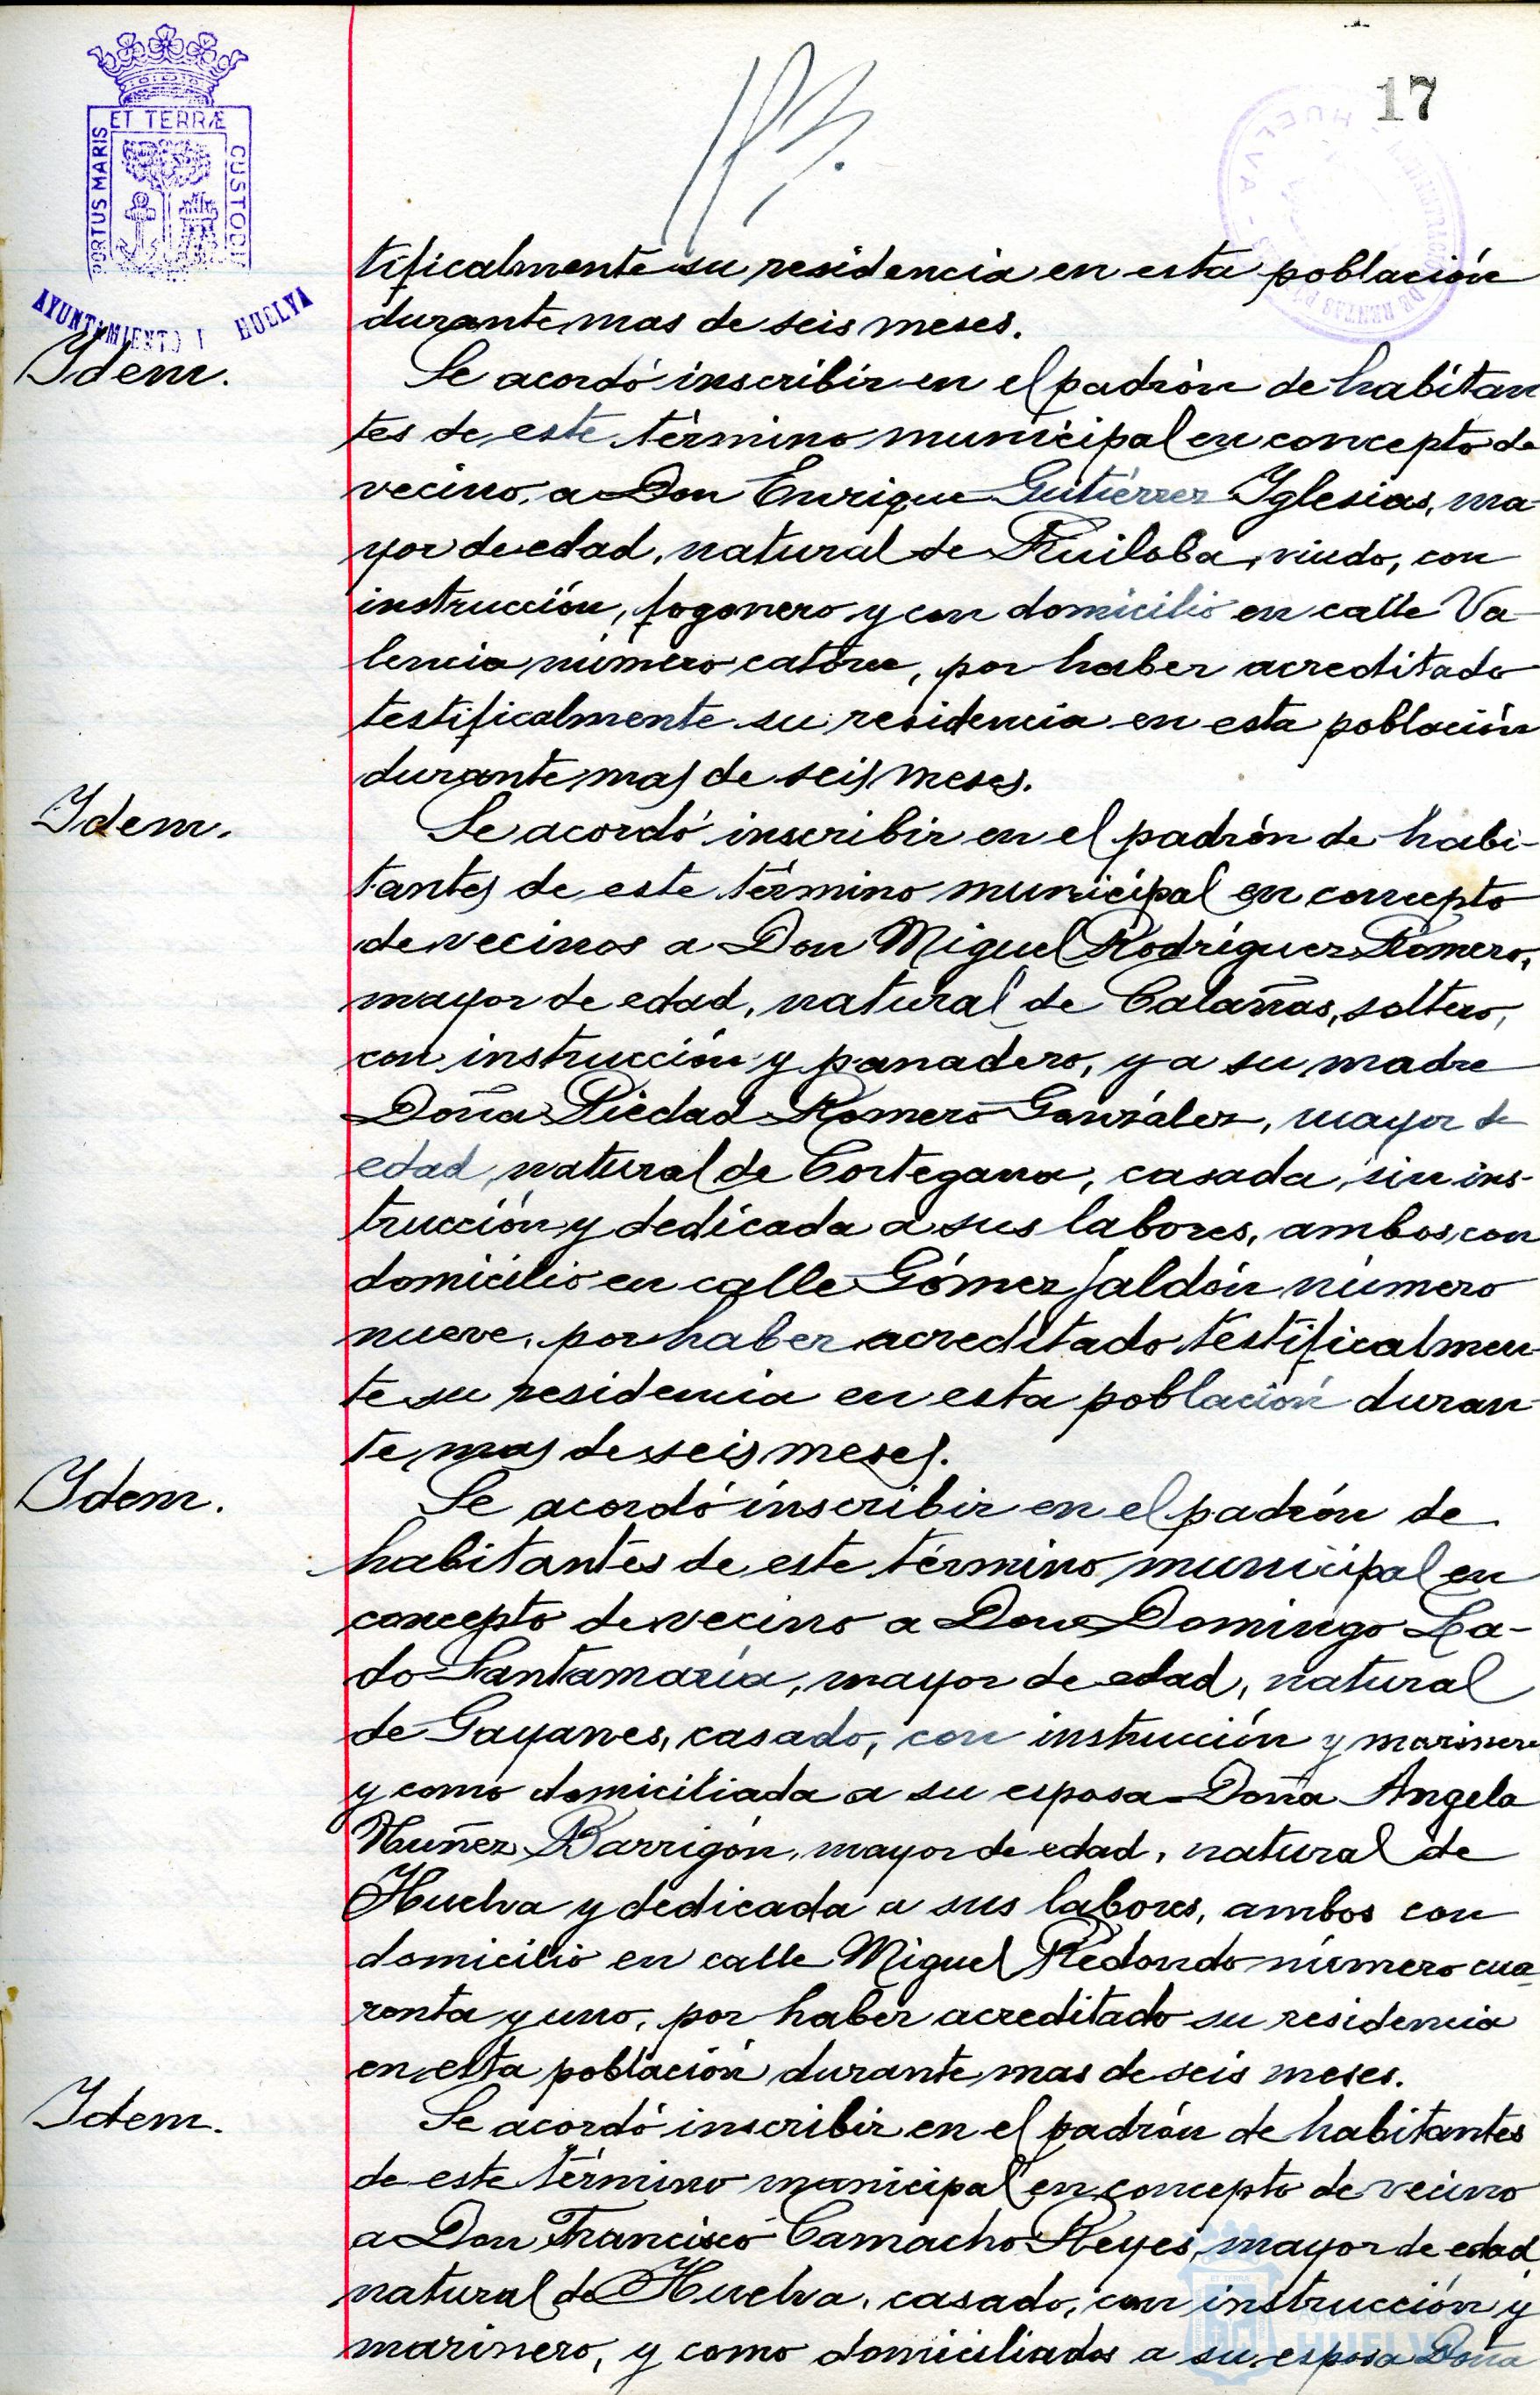 17
ET TERRÆ
PORTUS MARIS
CUSTODIA
AYUNTAMIENTO HUELVA
HUELVA
DE RENTAS
tificalmente su residencia en esta población
durante mas de seis meses.
Idem.
Se acordó inscribir en el padrón de habitan
tes de este término municipal en concepto de
vecino, a Don Enrique Gutiérrez Iglesias, ma-
yor de edad, natural de Ruiloba, viudo, con
instrucción, fogonero y con domicilio en calle Va-
lencia número catorce, por haber acreditado
testificalmente su residencia en esta población
durante mas de seis meses.
Idem.
Se acordó inscribir en el padrón de habi-
tantes de este término municipal en concepto
de vecinos a Don Miguel Rodríguez Romero,
mayor de edad, natural de Calañas, soltero,
con instrucción y panadero, y a su madre
Doña Piedad Romero González, mayor de
edad, natural de Cortegana, casada, sin ins-
trucción y dedicada a sus labores, ambos con
domicilio en calle Gómez Jaldón número
nueve, por haber acreditado testificalmen-
te su residencia en esta población duran-
te mas de seis meses.
Idem.
Se acordó inscribir en el padrón de
habitantes de este término municipal en
concepto de vecino a Don Domingo La-
do Santamaría, mayor de edad, natural
de Gayanes, casado, con instrucción y marinero
y como domiciliada a su esposa Doña Angela
Nuñez Barrigón, mayor de edad, natural de
Huelva y dedicada a sus labores, ambos con
domicilio en calle Miguel Redondo número cua-
renta y uno, por haber acreditado su residencia
en esta población durante mas de seis meses.
Idem.
Se acordó inscribir en el padrón de habitantes
de este término municipal en concepto de vecino
a Don Francisco Camacho Reyes, mayor de edad,
natural de Huelva, casado, con instrucción y
marinero, y como domiciliados a su esposa Doña
Ayuntamiento de
HUELVA